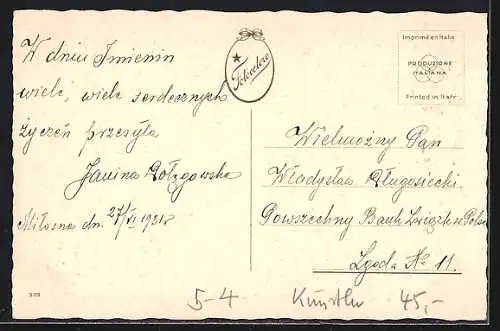 W dniu Imienin
wiele, wiele serdecznych
życzeń przesyła
Janina
Miłosna dn. 27/VI 1931 r
Imprimé en Italie
PRODUZIONE
ITALIANA
Printed in Italy
Wielmożny Pan
Władysław Długosiecki
Powszechny Bank Związk. w Polsce
Zgoda No 11.
5-4 Künstler 45,-